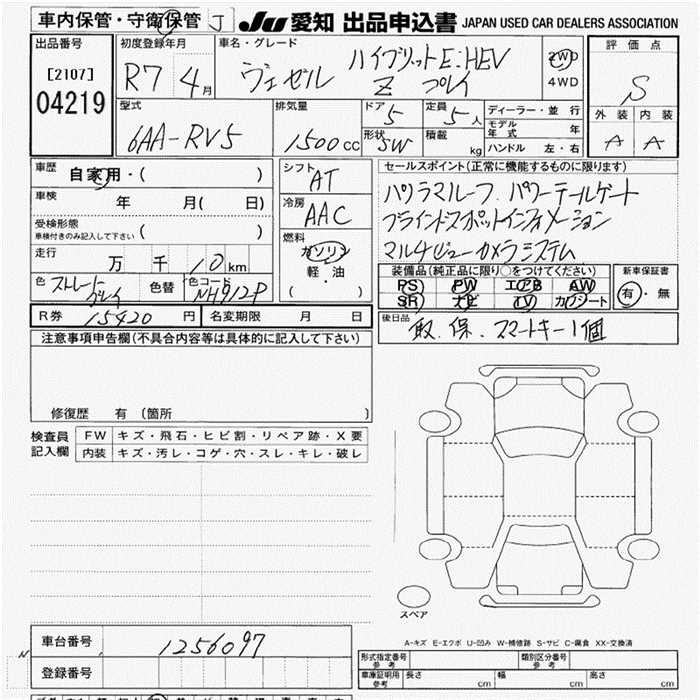 車内保管・守衛保管 J JU 愛知 出品申込書 JAPAN USED CAR DEALERS ASSOCIATION
出品番号 初度登録年月 車名・グレード 評価点
[2107] R7 4月 ヴェゼル ハイブリットE:HEV 2WD
04219 Z プレイ 4WD S
型式 排気量 ドア 定員 ディーラー・並行 外装 内装
6AA-RV5 1500cc 5 5人 モデル年式 年 A A
形状 SW 積載 kg ハンドル 左・右
車歴 自家用・( ) シフト AT セールスポイント(正常に機能するものに限ります)
車検 年 月( 日) 冷房 AAC パノラマルーフ、パワーテールゲート
受検形態 車検付きのみ記入して下さい ( ) ブラインドスポットインフォメーション
燃料 ガソリン マルチビューカメラシステム
走行 万 千 10km 軽・油 装備品(純正品に限り○をつけてください) 新車保証書
色 ストレートグレイ 色替 色コード NH912P ( ) PS PW エアB AW 有・無
SR ナビ TV カワシート
R券 15420円 名変期限 月 日 後日品 取.保.スマートキー1個
注意事項申告欄(不具合内容等は具体的に記入して下さい)
修復歴 有 (箇所 )
検査員記入欄 FW キズ・飛石・ヒビ割・リペア跡・X要
内装 キズ・汚レ・コゲ・穴・スレ・キレ・破レ
スペア
車台番号 1256097 A-キズ E-エクボ U-凹み W-補修跡 S-サビ C-腐食 XX-交換済
登録番号 形式指定番号 参考 類別区分番号 参考
車庫証明用 参考 長さ cm 幅 cm 高さ cm